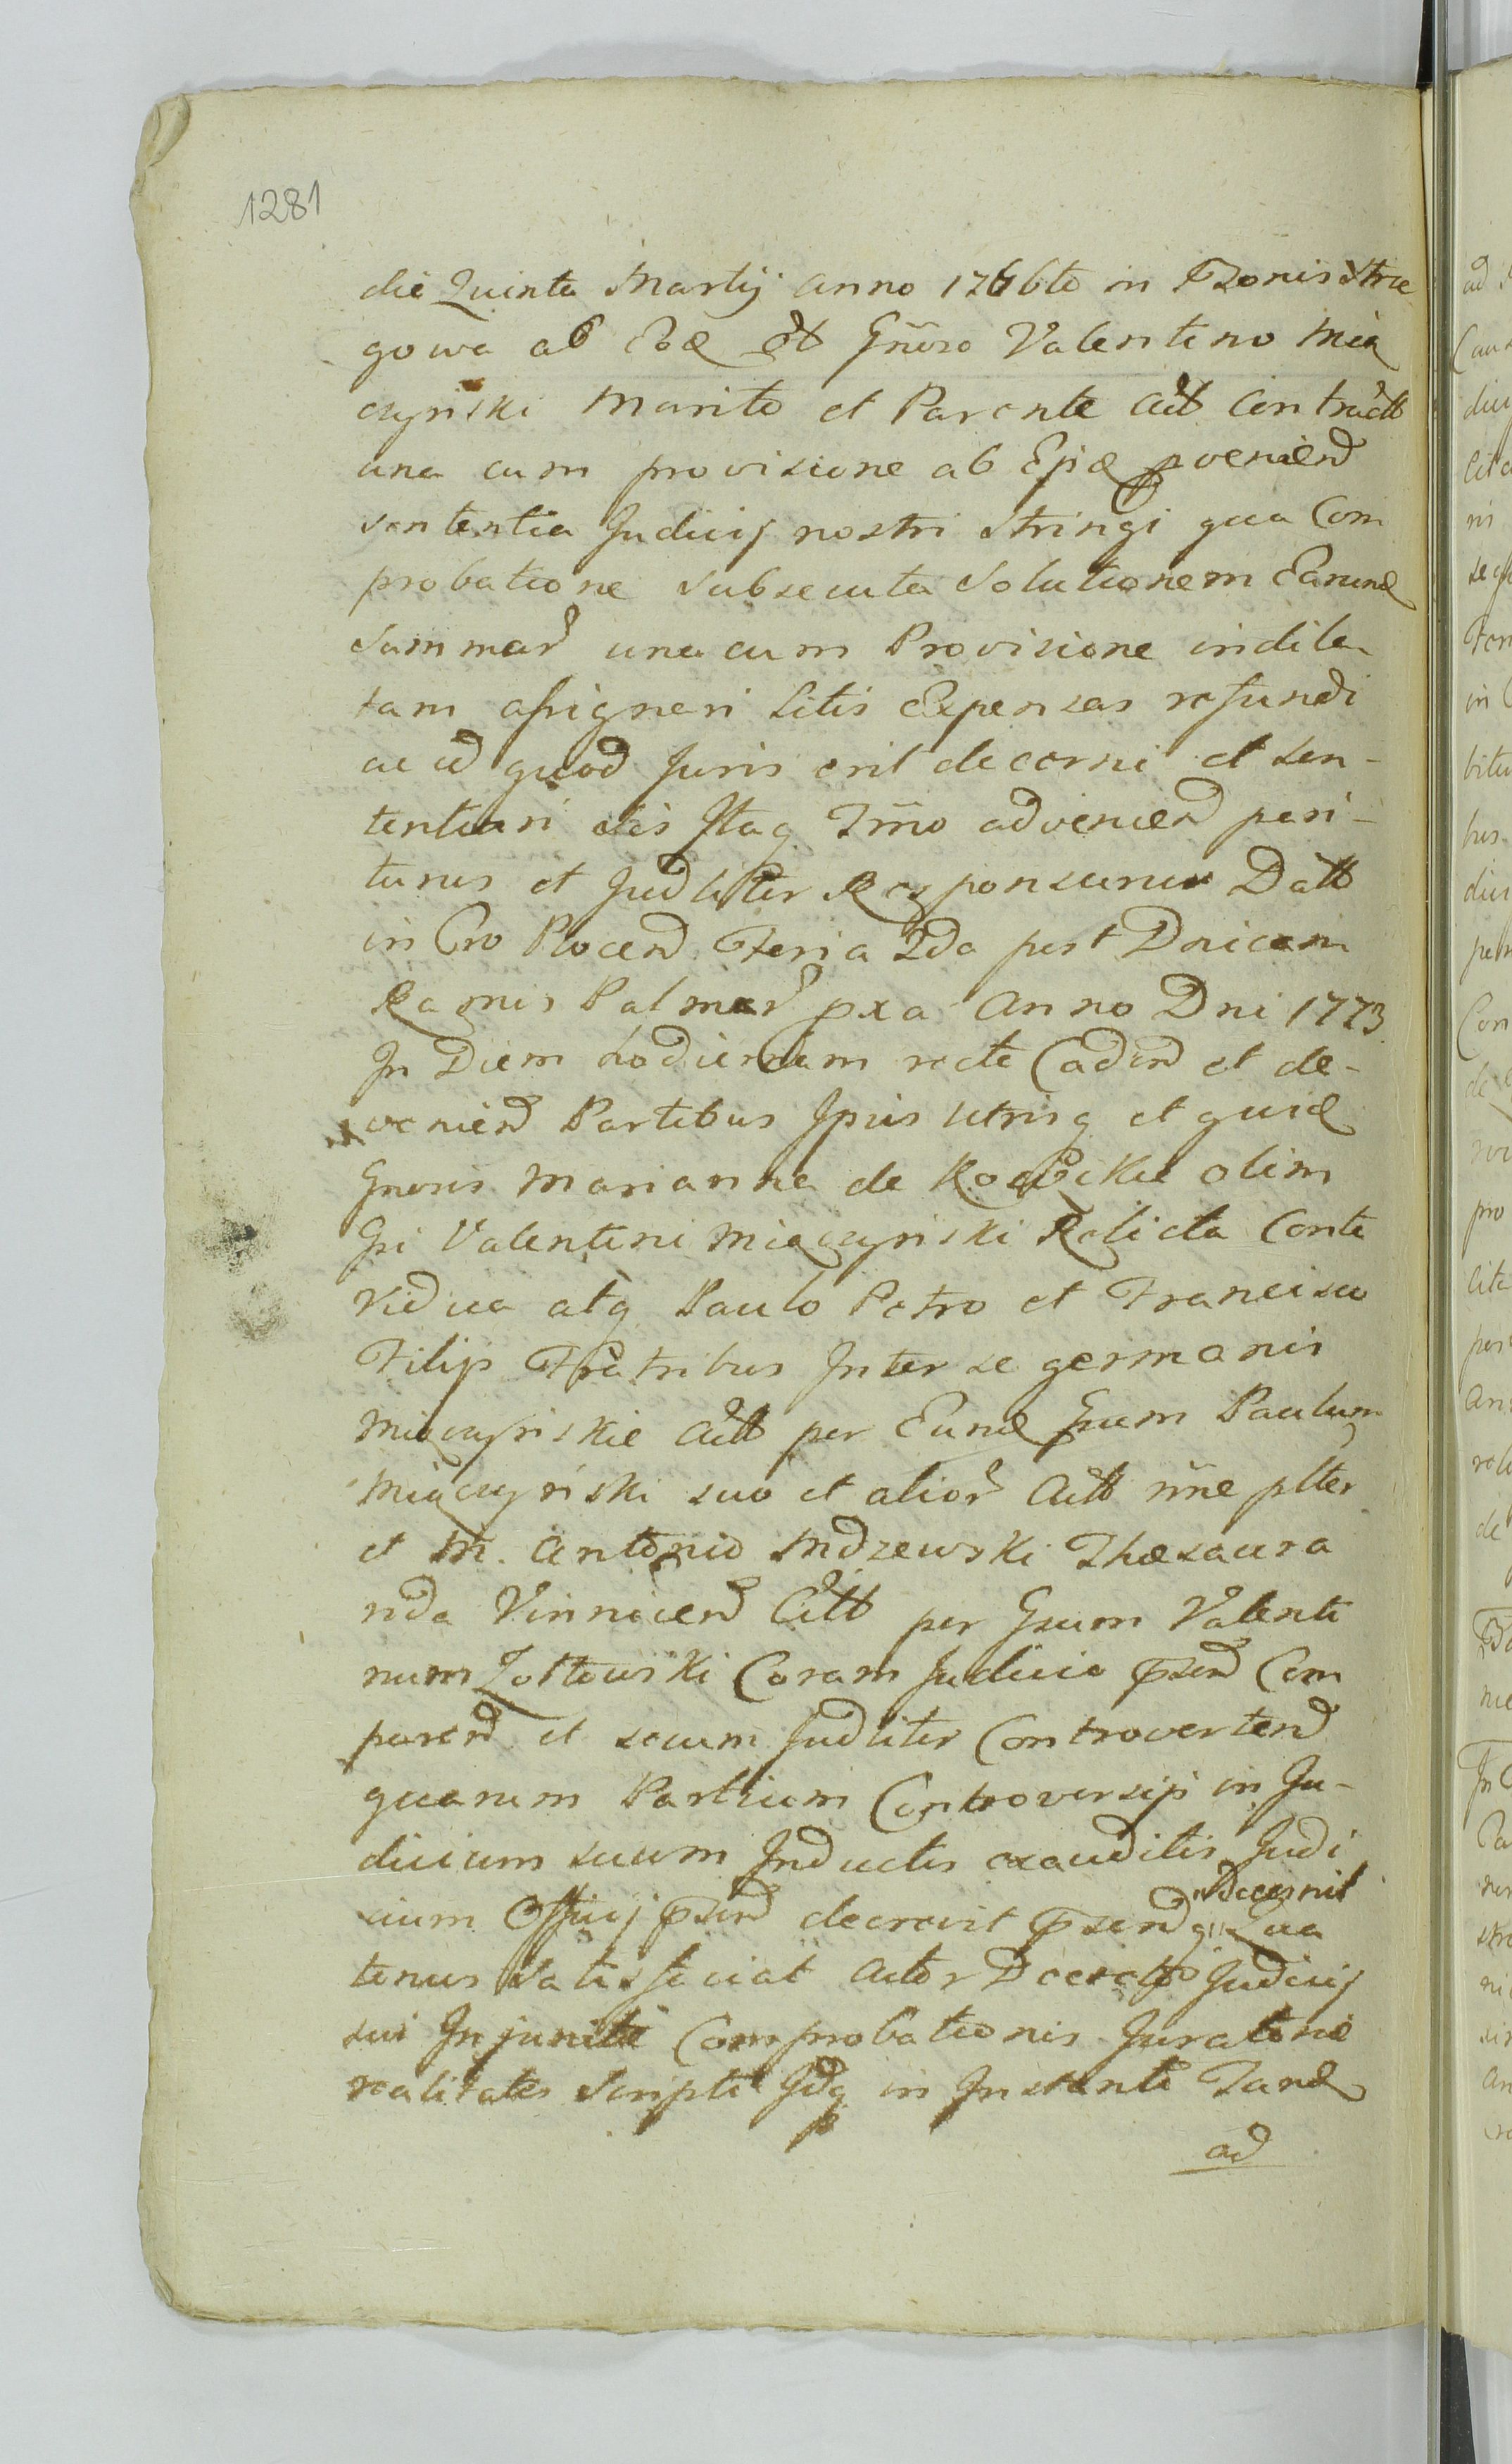 1281
die Quinta Martij anno 1766to in Bonis Strze
gowa ab Eod Gnroso Valentino Mią
czyński Marito et Parente Actt Contractt
una cum provisione ab Ejsd pveniend
sententia Judicij nostri stringi qua Com
probatione subsecuta solutionem Earund
summar una cum Provisione indila
tam assignari Litis Expensas refundi
ac id quod Juris erit decerni et sen-
tentiari Itaq Tmno advenien pari-
turus et Judliter Responsurus Datt
in Cro Plocen Feria 2da post Dnicam
Ramis Palmar pxa Anno Dni 1773
In Diem hodiernum recte Caden et de-
venien Partibus Ipsis Utrisq et quid
Gnrosis Marianna de olim
Gsi Valentini Miączyński Relicta Conte
Vidua atq Paulo Petro et Francisco
Filijs Fratribus Inter se germanis
Miączyńskie Actt per Eund Gsum Paulum
Miączyński suo et alior Actt nne plter
et M. Antonio Mdzewski Thesaura
rida Vinnicen Citt per Gsum Valenti
num Zołtowski Coram Judicio psen Com
paren et secum Judliter Controverten
quarum Partium Controversijs in Ju-
dicium suum Inductis exauditis Judi
cium Officij psen decrevit psen Decernit
Qua
tenus satisfaciat Actor Decreto Judicij
sui Injuncti Comprobationis Juratoriae
realitatis Scripti Idq in Instanti Tand
ad